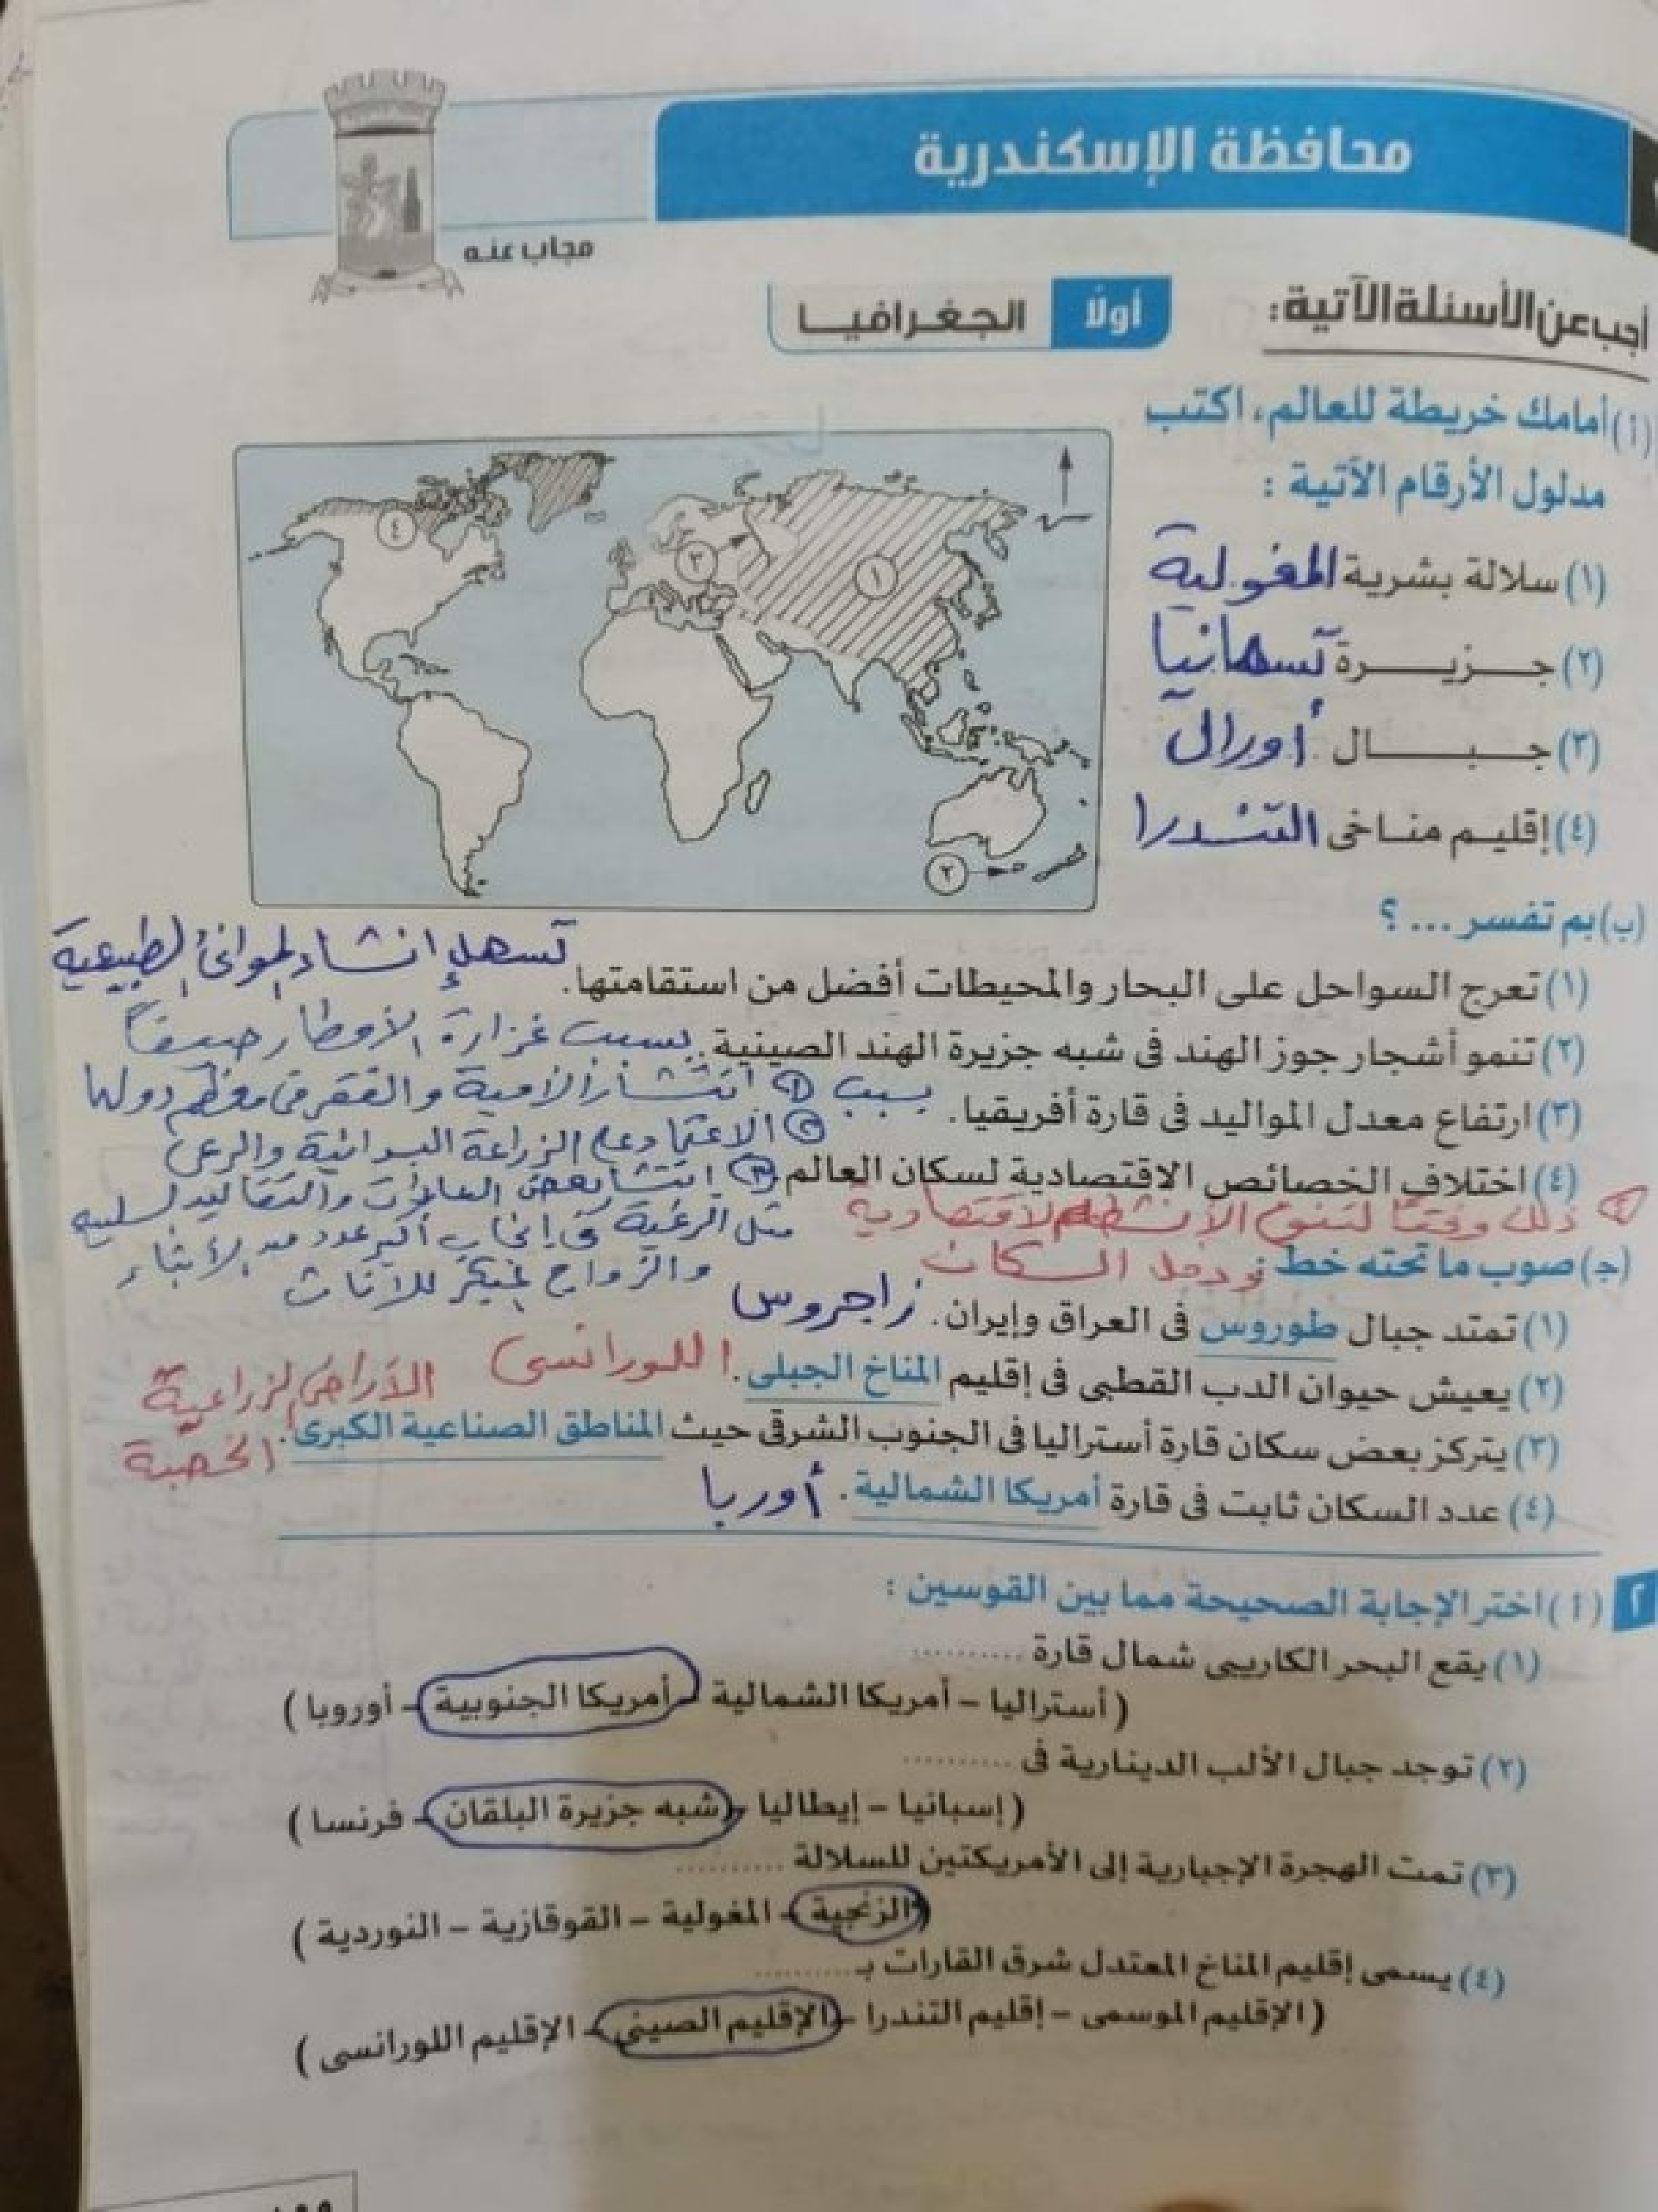 محافظة الإسكندرية
مجاب عنه
أجب عن الأسئلة الآتية:
أولا الجغرافيا
(أ) أمامك خريطة للعالم، اكتب
مدلول الأرقام الآتية :
١
٢
٣
٤
(١) سلالة بشرية المغولية
(٢) جزيرة تسمانيا
(٣) جبال أورال
(٤) إقليم مناخى التندرا
(ب) بم تفسر ... ؟
تسهل إنشاء الموانئ الطبيعية
(١) تعرج السواحل على البحار والمحيطات أفضل من استقامتها.
(٢) تنمو أشجار جوز الهند فى شبه جزيرة الهند الصينية. بسبب غزارة الأمطار صيفاً
(٣) ارتفاع معدل المواليد فى قارة أفريقيا. بسبب ① انتشار الأمية والفقر فى معظم دولها
② الاعتماد على الزراعة البدائية والرعى
(٤) اختلاف الخصائص الاقتصادية لسكان العالم ③ انتشار بعض العادات والتقاليد السلبية
مثل الرغبة فى إنجاب أكبر عدد من الأبناء
والزواج المبكر للإناث
ذلك وفقًا لتنوع الأنشطة الاقتصادية
ودخل السكان
(ج) صوب ما تحته خط
(١) تمتد جبال طوروس فى العراق وإيران. زاجروس
(٢) يعيش حيوان الدب القطبى فى إقليم المناخ الجبلى. اللورانسى
(٣) يتركز بعض سكان قارة أستراليا فى الجنوب الشرقى حيث المناطق الصناعية الكبرى. الأراضى الزراعية
الخصبة
(٤) عدد السكان ثابت فى قارة أمريكا الشمالية. أوربا
٢ (أ) اختر الإجابة الصحيحة مما بين القوسين :
(١) يقع البحر الكاريبى شمال قارة ..........
( أستراليا – أمريكا الشمالية – أمريكا الجنوبية – أوروبا )
(٢) توجد جبال الألب الدينارية فى ..........
( إسبانيا – إيطاليا – شبه جزيرة البلقان – فرنسا )
(٣) تمت الهجرة الإجبارية إلى الأمريكتين للسلالة ..........
( الزنجية – المغولية – القوقازية – النوردية )
(٤) يسمى إقليم المناخ المعتدل شرق القارات بـ ..........
( الإقليم الموسمى – إقليم التندرا – الإقليم الصينى – الإقليم اللورانسى )